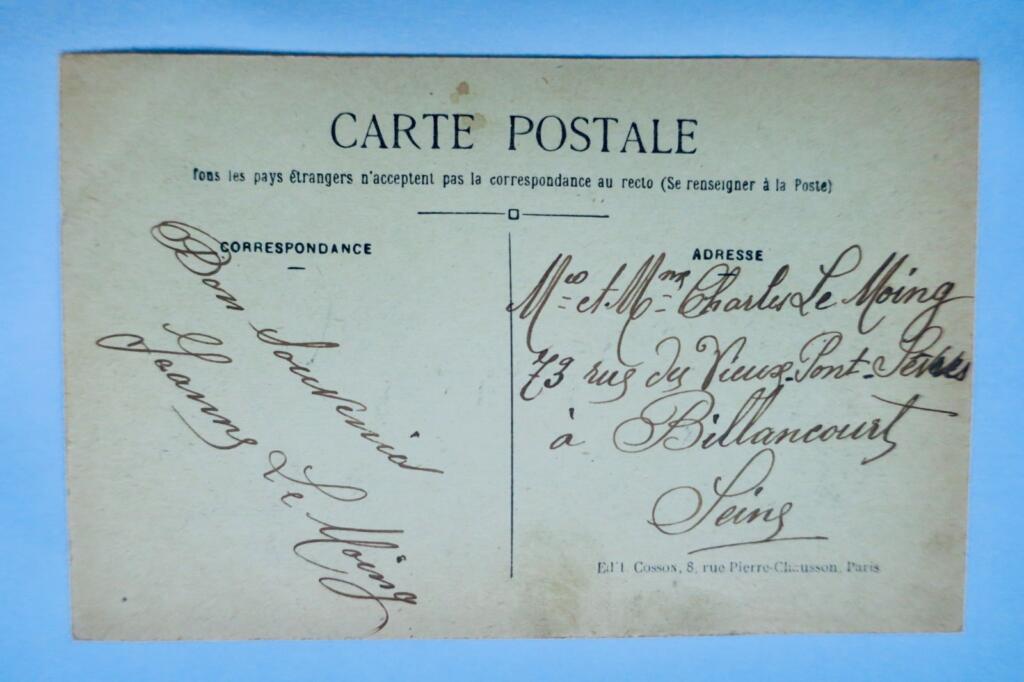 CARTE POSTALE
Tous les pays étrangers n'acceptent pas la correspondance au recto (Se renseigner à la Poste)
CORRESPONDANCE
Bon Souvenir
Jeanne Le Moing
ADRESSE
Mr et Mme Charles Le Moing
73 rue du Vieux-Pont-Sèvres
à Billancourt
Seine
Edit Cosson, 8, rue Pierre-Chausson, Paris